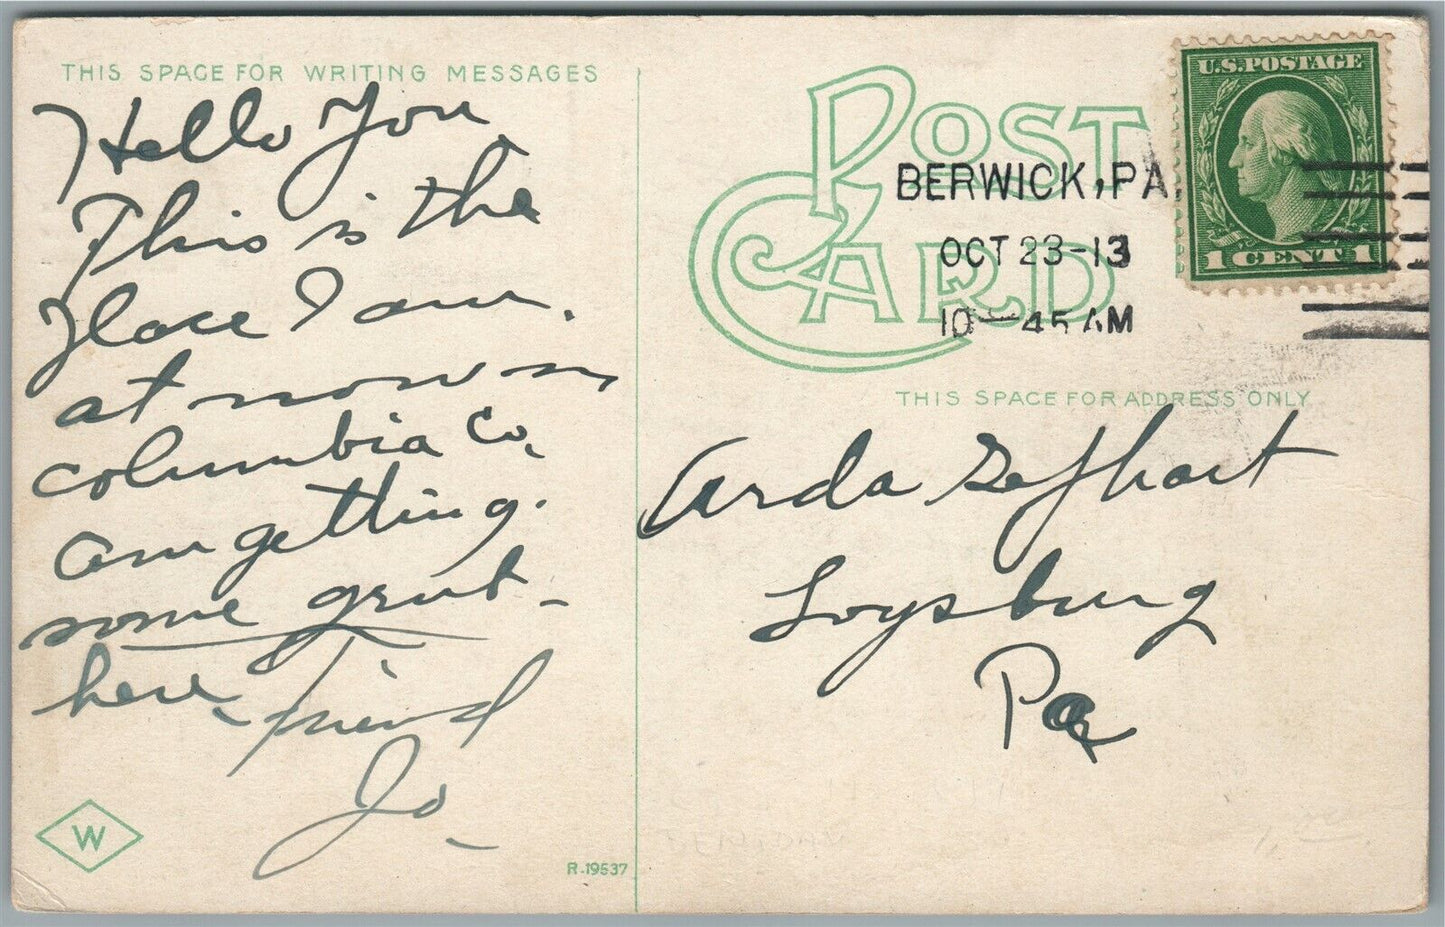 THIS SPACE FOR WRITING MESSAGES
Hello You
This is the
place I am
at now in
Columbia Co.
am getting
some grub
here
friend
Jo
W
R-19537
POST
CARD
BERWICK, PA.
OCT 23-13
10-45 AM
U.S. POSTAGE
1 CENT 1
THIS SPACE FOR ADDRESS ONLY
Arda Gephart
Loysburg
Pa